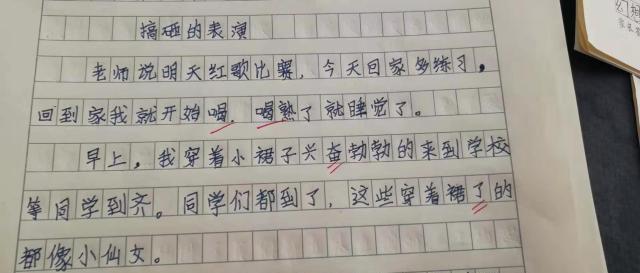 搞砸的表演
老师说明天红歌比赛，今天回家多练习，
回到家我就开始喝，喝熟了就睡觉了。
早上，我穿着小裙子兴奋勃勃的来到学校
等同学到齐。同学们都到了，这些穿着裙了的
都像小仙女。